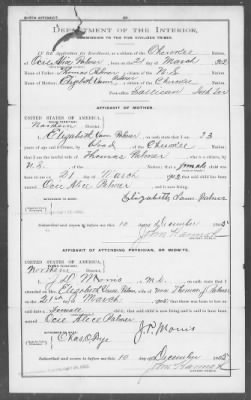 BIRTH AFFIDAVIT.
DEPARTMENT OF THE INTERIOR,
COMMISSION TO THE FIVE CIVILIZED TRIBES.
In re Application for Enrollment, as a citizen of the Cherokee Nation,
of Ocie Alice Palmer, born on the 21 day of March, 1902
Name of Father: Thomas Palmer a citizen of the U.S. Nation.
Name of Mother: Elizabeth Palmer a citizen of the Cherokee Nation.
Post-office Sallisaw Ind Ter
AFFIDAVIT OF MOTHER.
UNITED STATES OF AMERICA,
Northern District.
I, Elizabeth Palmer, on oath state that I am 23
years of age and a citizen by blood, of the Cherokee Nation;
that I am the lawful wife of Thomas Palmer, who is a citizen, by
U.S. Nation; that a female child was
born to me on 21 day of March, that said child has been
named Ocie Alice Palmer
Elizabeth Palmer
Subscribed and sworn to before me this 10 day of December, 1905
AFFIDAVIT OF ATTENDING PHYSICIAN, OR MIDWIFE.
UNITED STATES OF AMERICA,
Northern District.
I, J.P. Morris, a M.D., on oath state that I
attended on Elizabeth Palmer, wife of Thomas J. Palmer
on the 21st day of March, that there was born to her on
said date a female child; that said child is now living and is said to have been
named Ocie Alice Palmer
J.P. Morris
Subscribed and sworn to before me this 10 day of December, 1905